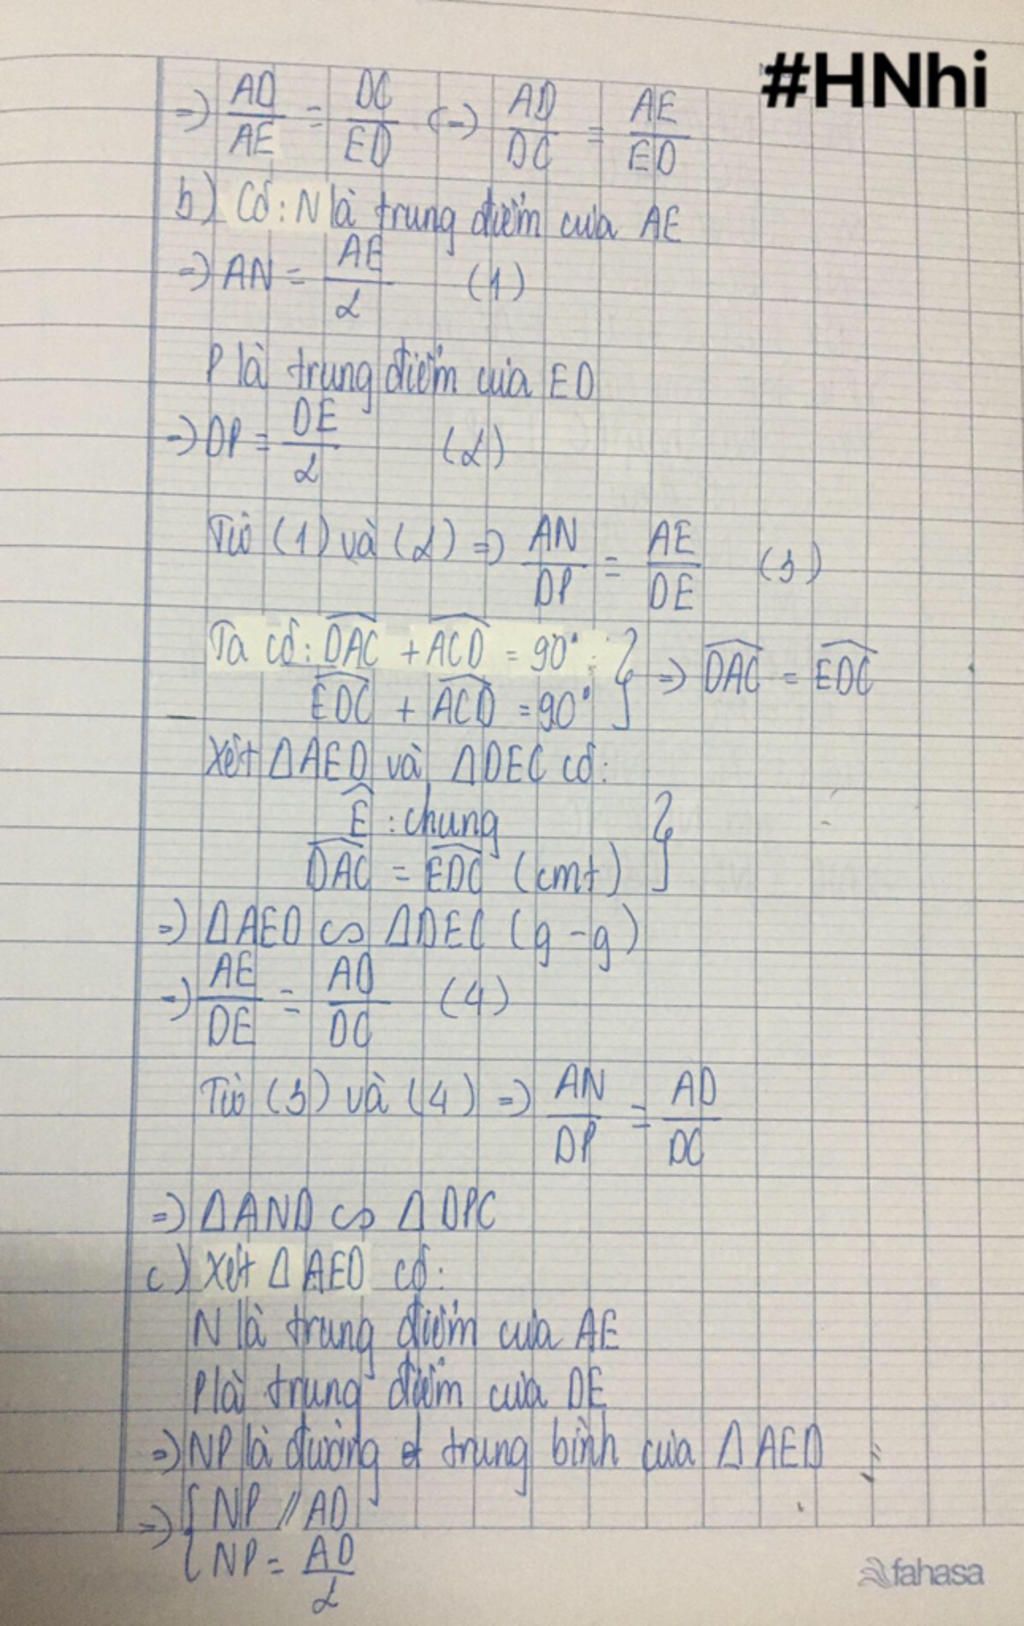 #HNhi
=> AD/AE = DC/ED <=> AD/DC = AE/ED
b) Có: N là trung điểm của AE
=> AN = AE/2 (1)
P là trung điểm của ED
=> DP = DE/2 (2)
Từ (1) và (2) => AN/DP = AE/DE (3)
Ta có: DAC + ACD = 90° } => DAC = EDC
EDC + ACD = 90°
Xét ΔAED và ΔDEC có:
Ê : chung }
DAC = EDC (cmt)
=> ΔAED ∽ ΔDEC (g-g)
=> AE/DE = AD/DC (4)
Từ (3) và (4) => AN/DP = AD/DC
=> ΔAND ∽ ΔDPC
c) Xét ΔAED có:
N là trung điểm của AE
P là trung điểm của DE
=> NP là đường trung bình của ΔAED
=> { NP // AD
NP = AD/2
fahasa